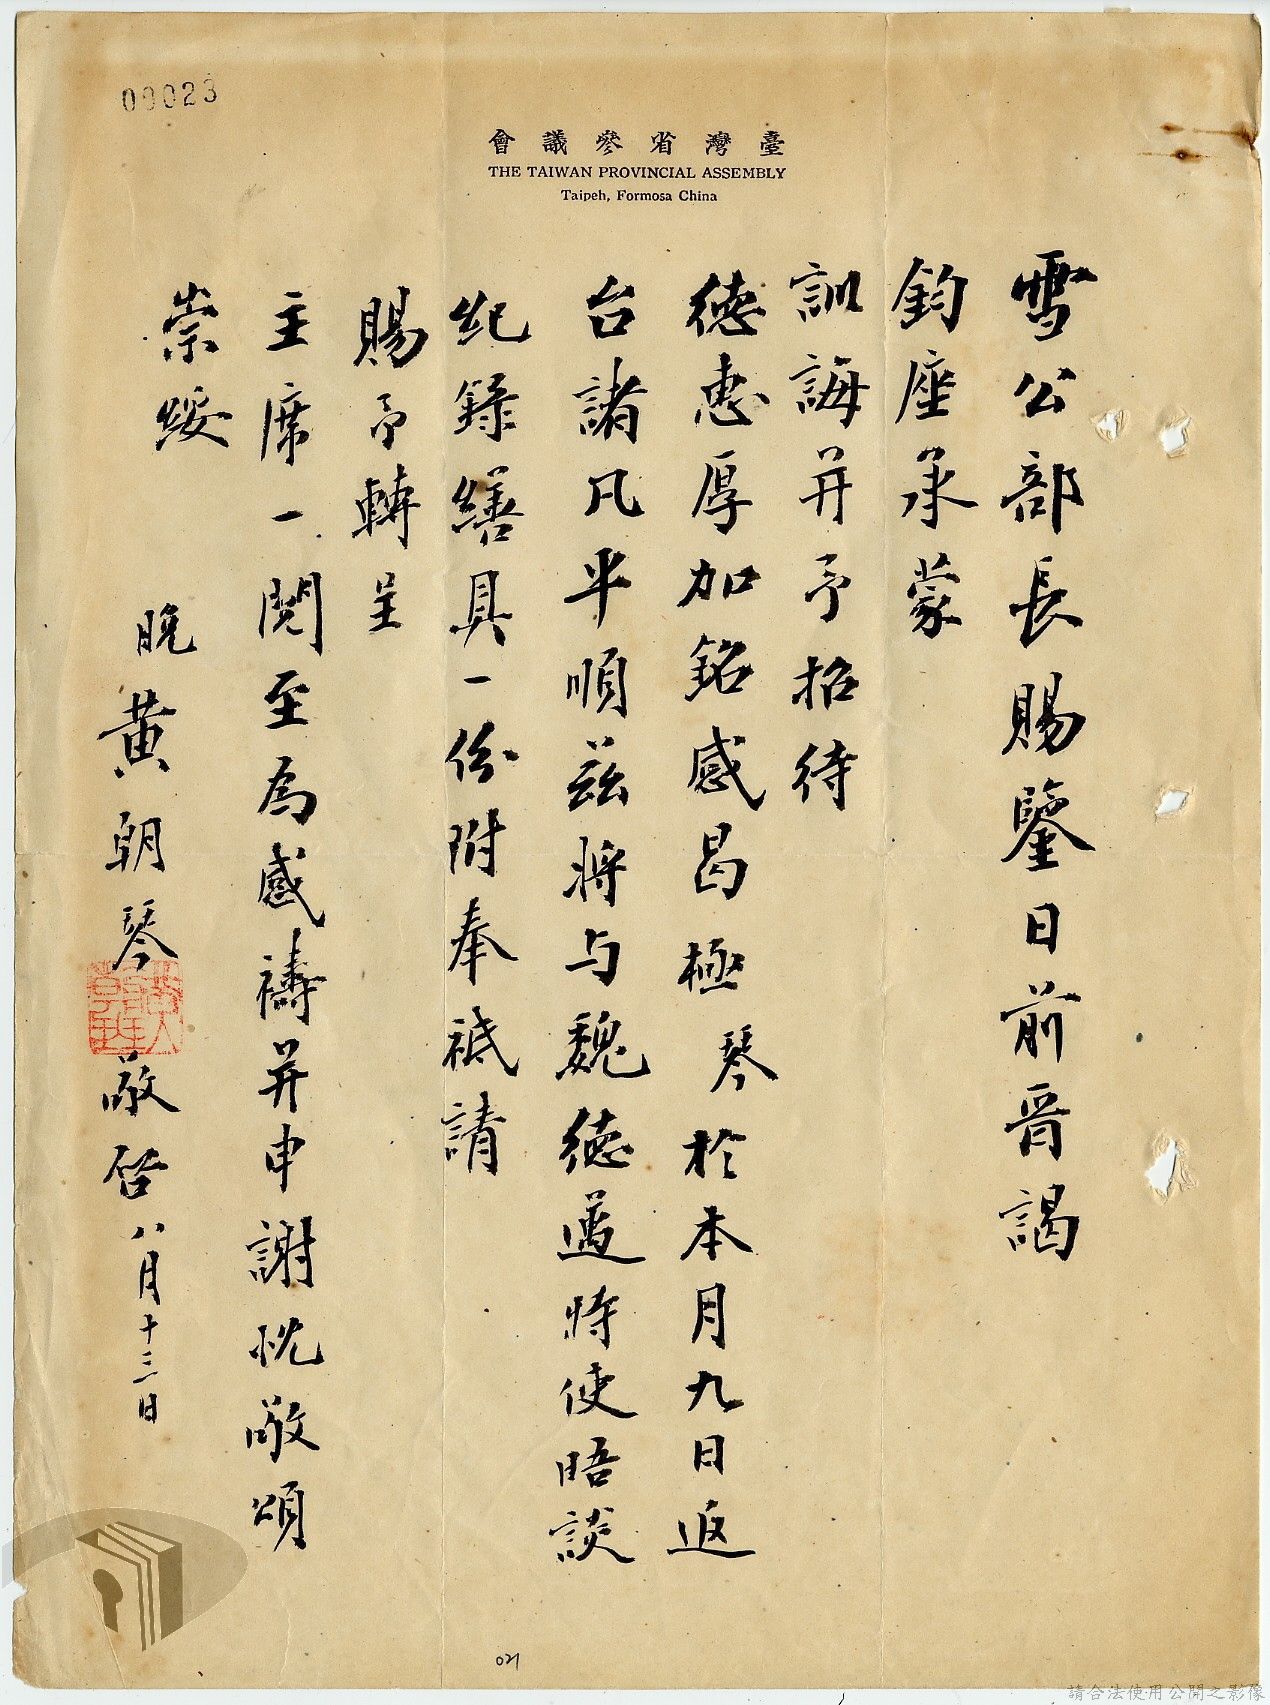 00023
臺灣省參議會
THE TAIWAN PROVINCIAL ASSEMBLY
Taipeh, Formosa China
雪公部長賜鑒日前晉謁
鈞座承蒙
訓誨并予招待
德惠厚加銘感曷極琴於本月九日返
台諸凡平順茲將与魏德邁特使晤談
紀錄繕具一份附奉祗請
賜予轉呈
主席一閱至為感禱并申謝忱敬頌
崇綏
晚黃朝琴敬啓八月十三日
021
請合法使用公開之影像